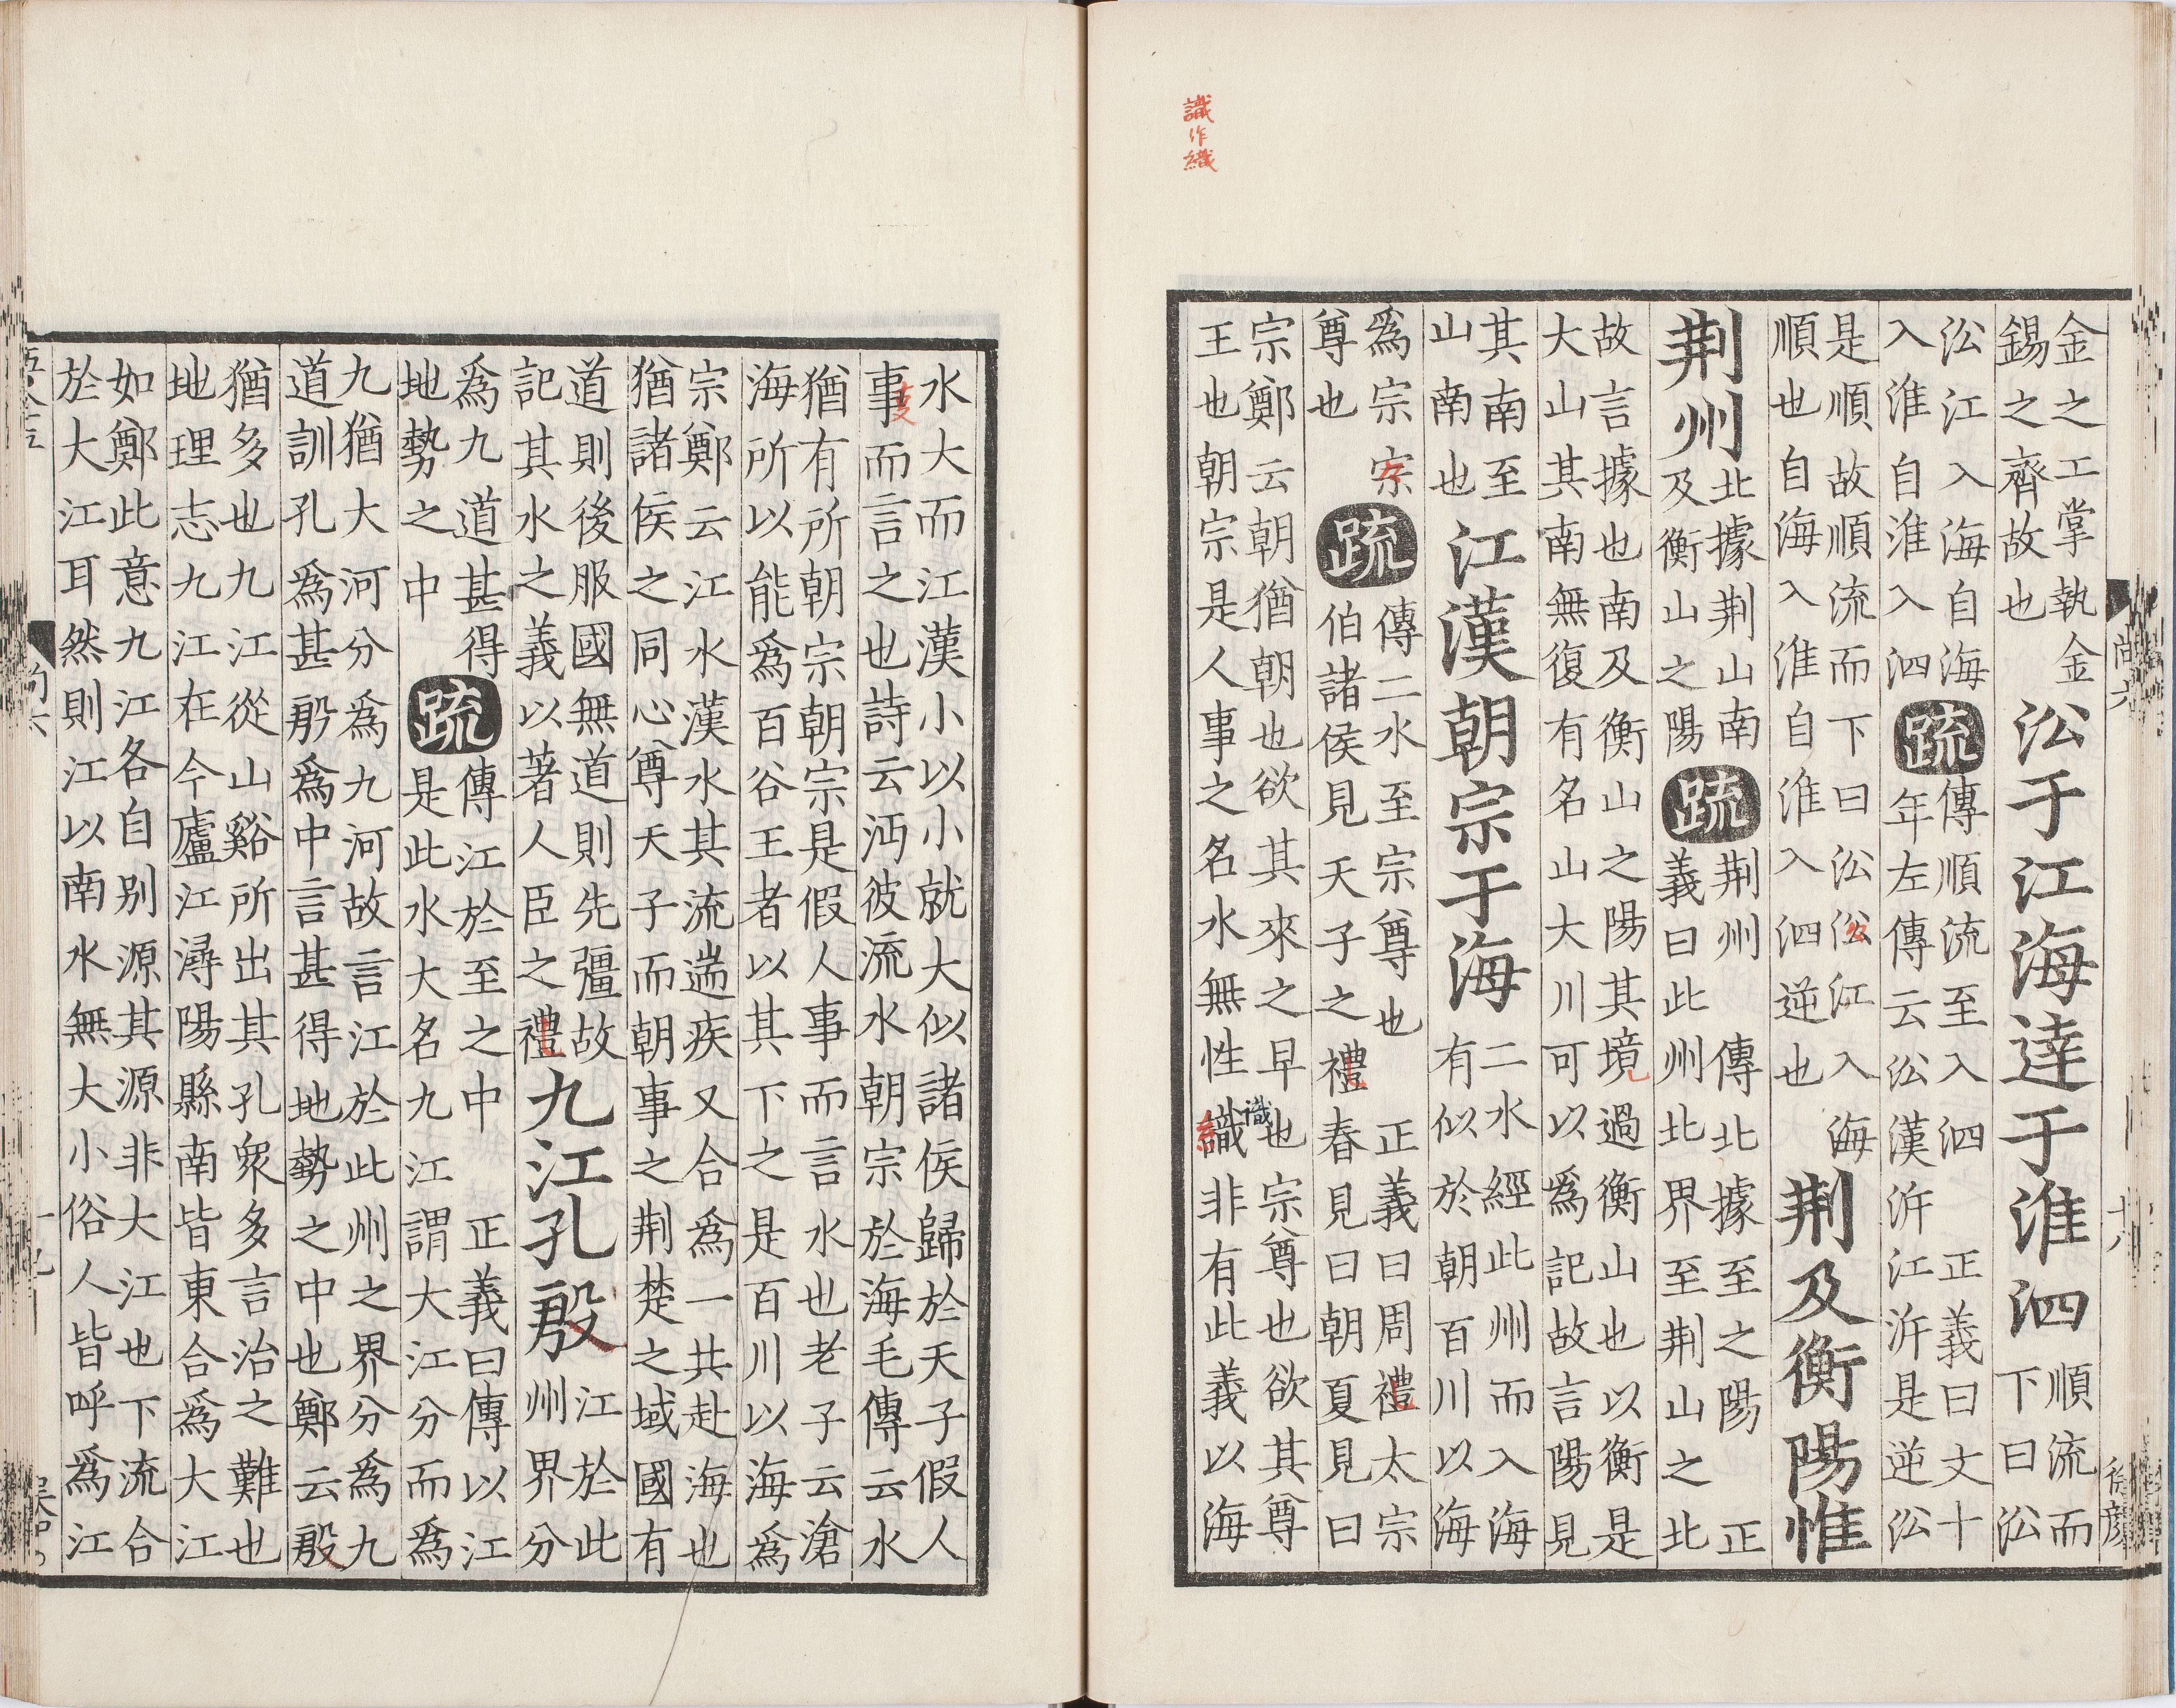 識作織
金之工掌執金
錫之齊故也
㳂于江海達于淮泗
順流而
下曰㳂
㳂江入海自海
入淮自淮入泗
疏
傳順流至入泗　正義曰文十
年左傳云㳂漢泝江泝是逆㳂
是順故順流而下曰㳂㳂江入海
順也自海入淮自淮入泗逆也
荆及衡陽惟
荆州
北據荆山南
及衡山之陽
疏
荆州　傳北據至之陽　正
義曰此州北界至荆山之北
故言據也南及衡山之陽其境過衡山也以衡是
大山其南無復有名山大川可以爲記故言陽見
其南至
山南也
江漢朝宗于海
二水經此州而入海
有似於朝百川以海
爲宗宗
尊也
疏
傳二水至宗尊也　正義曰周禮太宗
伯諸侯見天子之禮春見曰朝夏見曰
宗鄭云朝猶朝也欲其來之早也宗尊也欲其尊
王也朝宗是人事之名水無性織非有此義以海
識
水大而江漢小以小就大似諸侯歸於天子假人
事而言之也詩云沔彼流水朝宗於海毛傳云水
猶有所朝宗朝宗是假人事而言水也老子云滄
海所以能爲百谷王者以其下之是百川以海爲
宗鄭云江水漢水其流遄疾又合爲一共赴海也
猶諸侯之同心尊天子而朝事之荆楚之域國有
道則後服國無道則先彊故
記其水之義以著人臣之禮
九江孔殷
江於此
州界分
爲九道甚得
地勢之中
疏
傳江於至之中　正義曰傳以江
是此水大名九江謂大江分而爲
九猶大河分爲九河故言江於此州之界分爲九
道訓孔爲甚殷爲中言甚得地勢之中也鄭云殷
猶多也九江從山谿所出其孔衆多言治之難也
地理志九江在今廬江潯陽縣南皆東合爲大江
如鄭此意九江各自别源其源非大江也下流合
於大江耳然則江以南水無大小俗人皆呼爲江